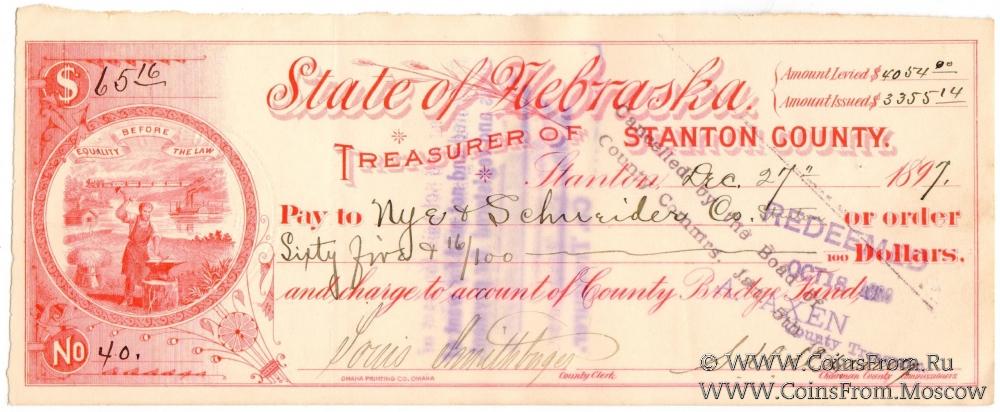 $ 65 16
State of Nebraska.
Amount Levied $ 4054 00
Amount Issued $ 3355 14
EQUALITY BEFORE THE LAW
TREASURER OF STANTON COUNTY.
Stanton, Dec. 27" 1897.
Pay to Nye & Schneider Co. or order
Sixty five & 16/100 100 Dollars,
and charge to account of County Bridge Fund.
No 40.
Louis
County Clerk.
Chairman County Commissioners
OMAHA PRINTING CO., OMAHA
Cancelled by the Board of
County Commrs.
REDEEMED
OCT 18
County
© CoinsFrom.Ру
www.CoinsFrom.Moscow